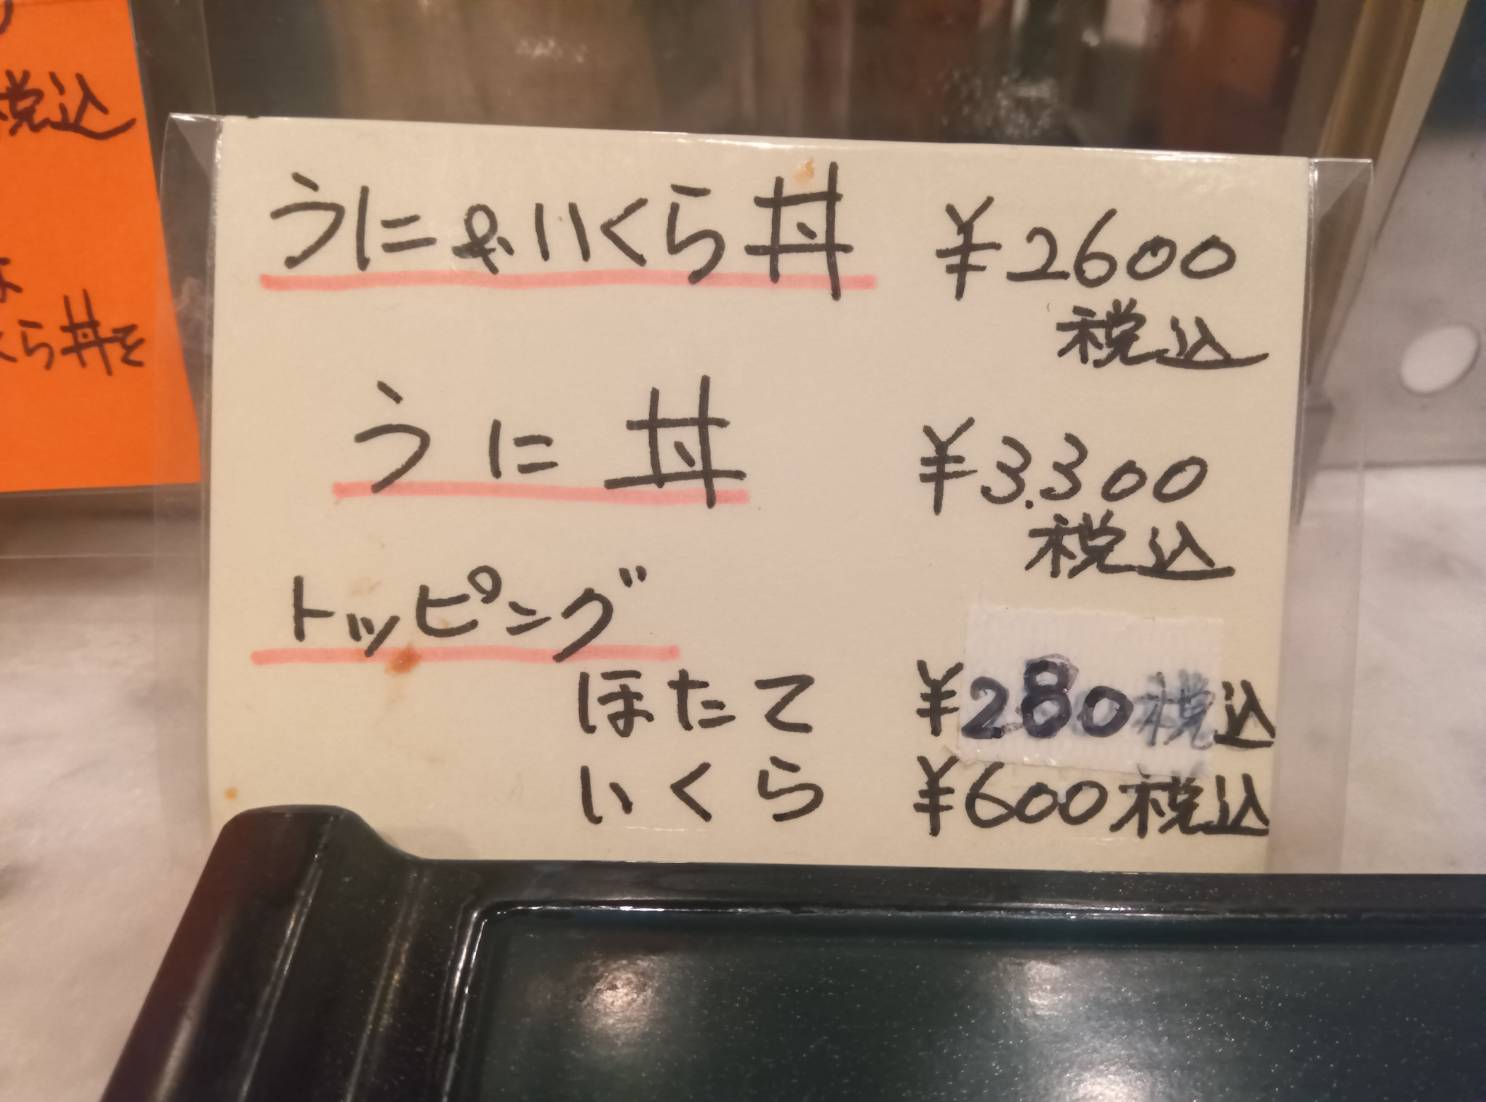 税込
ら丼を
うに&いくら丼 ¥2600
税込
うに丼 ¥3,300
税込
トッピング
ほたて ¥280税込
いくら ¥600税込